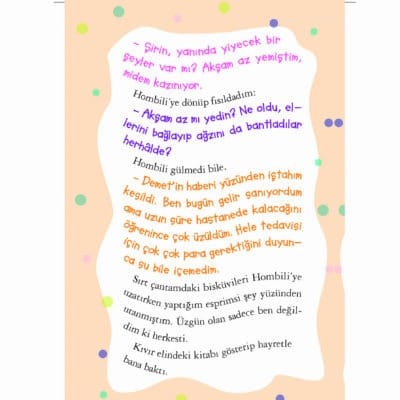 – Şirin, yanında yiyecek bir
şeyler var mı? Akşam az yemiştim,
midem kazınıyor.
Hombili'ye dönüp fısıldadım:
– Akşam az mı yedin? Ne oldu, el-
lerini bağlayıp ağzını da bantladılar
herhâlde?
Hombili gülmedi bile.
– Demet'in haberi yüzünden iştahım
kesildi. Ben bugün gelir sanıyordum
ama uzun süre hastanede kalacağını
öğrenince çok üzüldüm. Hele tedavisi
için çok çok para gerektiğini duyun-
ca su bile içemedim.
Sırt çantamdaki bisküvileri Hombili'ye
uzatırken yaptığım esprimsi şey yüzünden
utanmıştım. Üzgün olan sadece ben değil-
dim ki herkesti.
Kıvır elindeki kitabı gösterip hayretle
bana baktı.